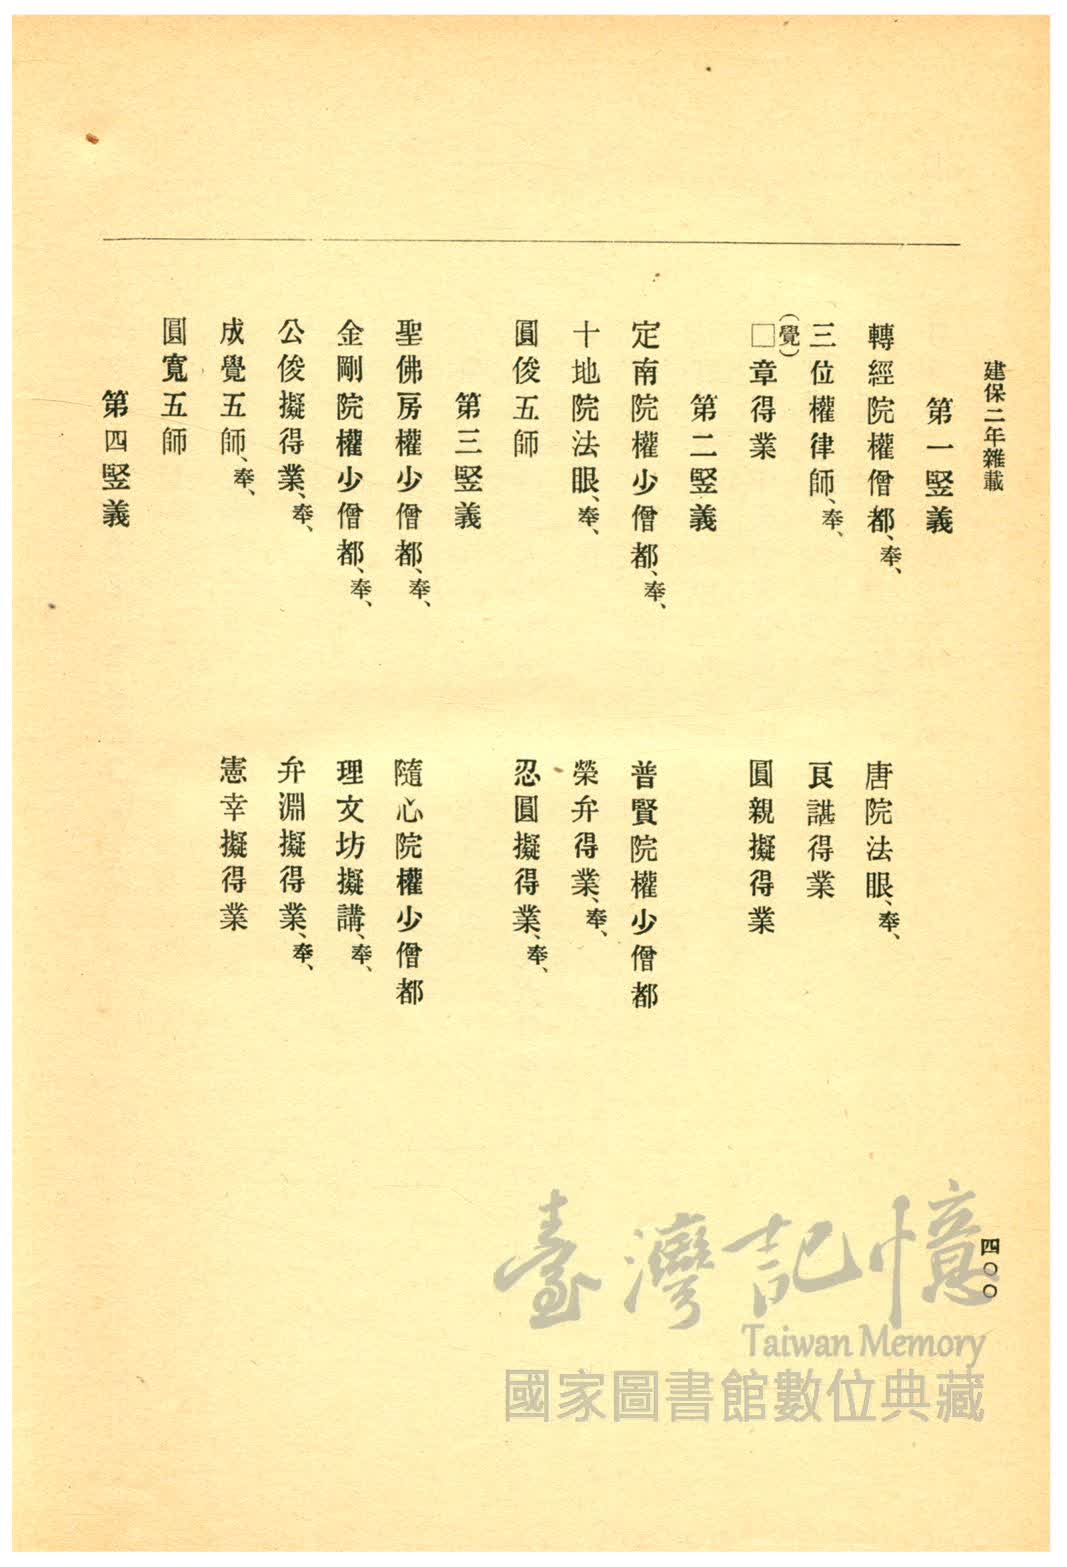 建保二年雜載
四〇〇
第一竪義
轉經院權僧都、奉、
唐院法眼、奉、
三位權律師、奉、
良諶得業
(覺)
□章得業
圓親擬得業
第二竪義
定南院權少僧都、奉、
普賢院權少僧都
十地院法眼、奉、
榮弁得業、奉、
圓俊五師
忍圓擬得業、奉、
第三竪義
聖佛房權少僧都、奉、
隨心院權少僧都
金剛院權少僧都、奉、
理文坊擬講、奉、
公俊擬得業、奉、
弁淵擬得業、奉、
成覺五師、奉、
憲幸擬得業
圓寬五師
第四竪義
臺灣記憶
Taiwan Memory
國家圖書館數位典藏